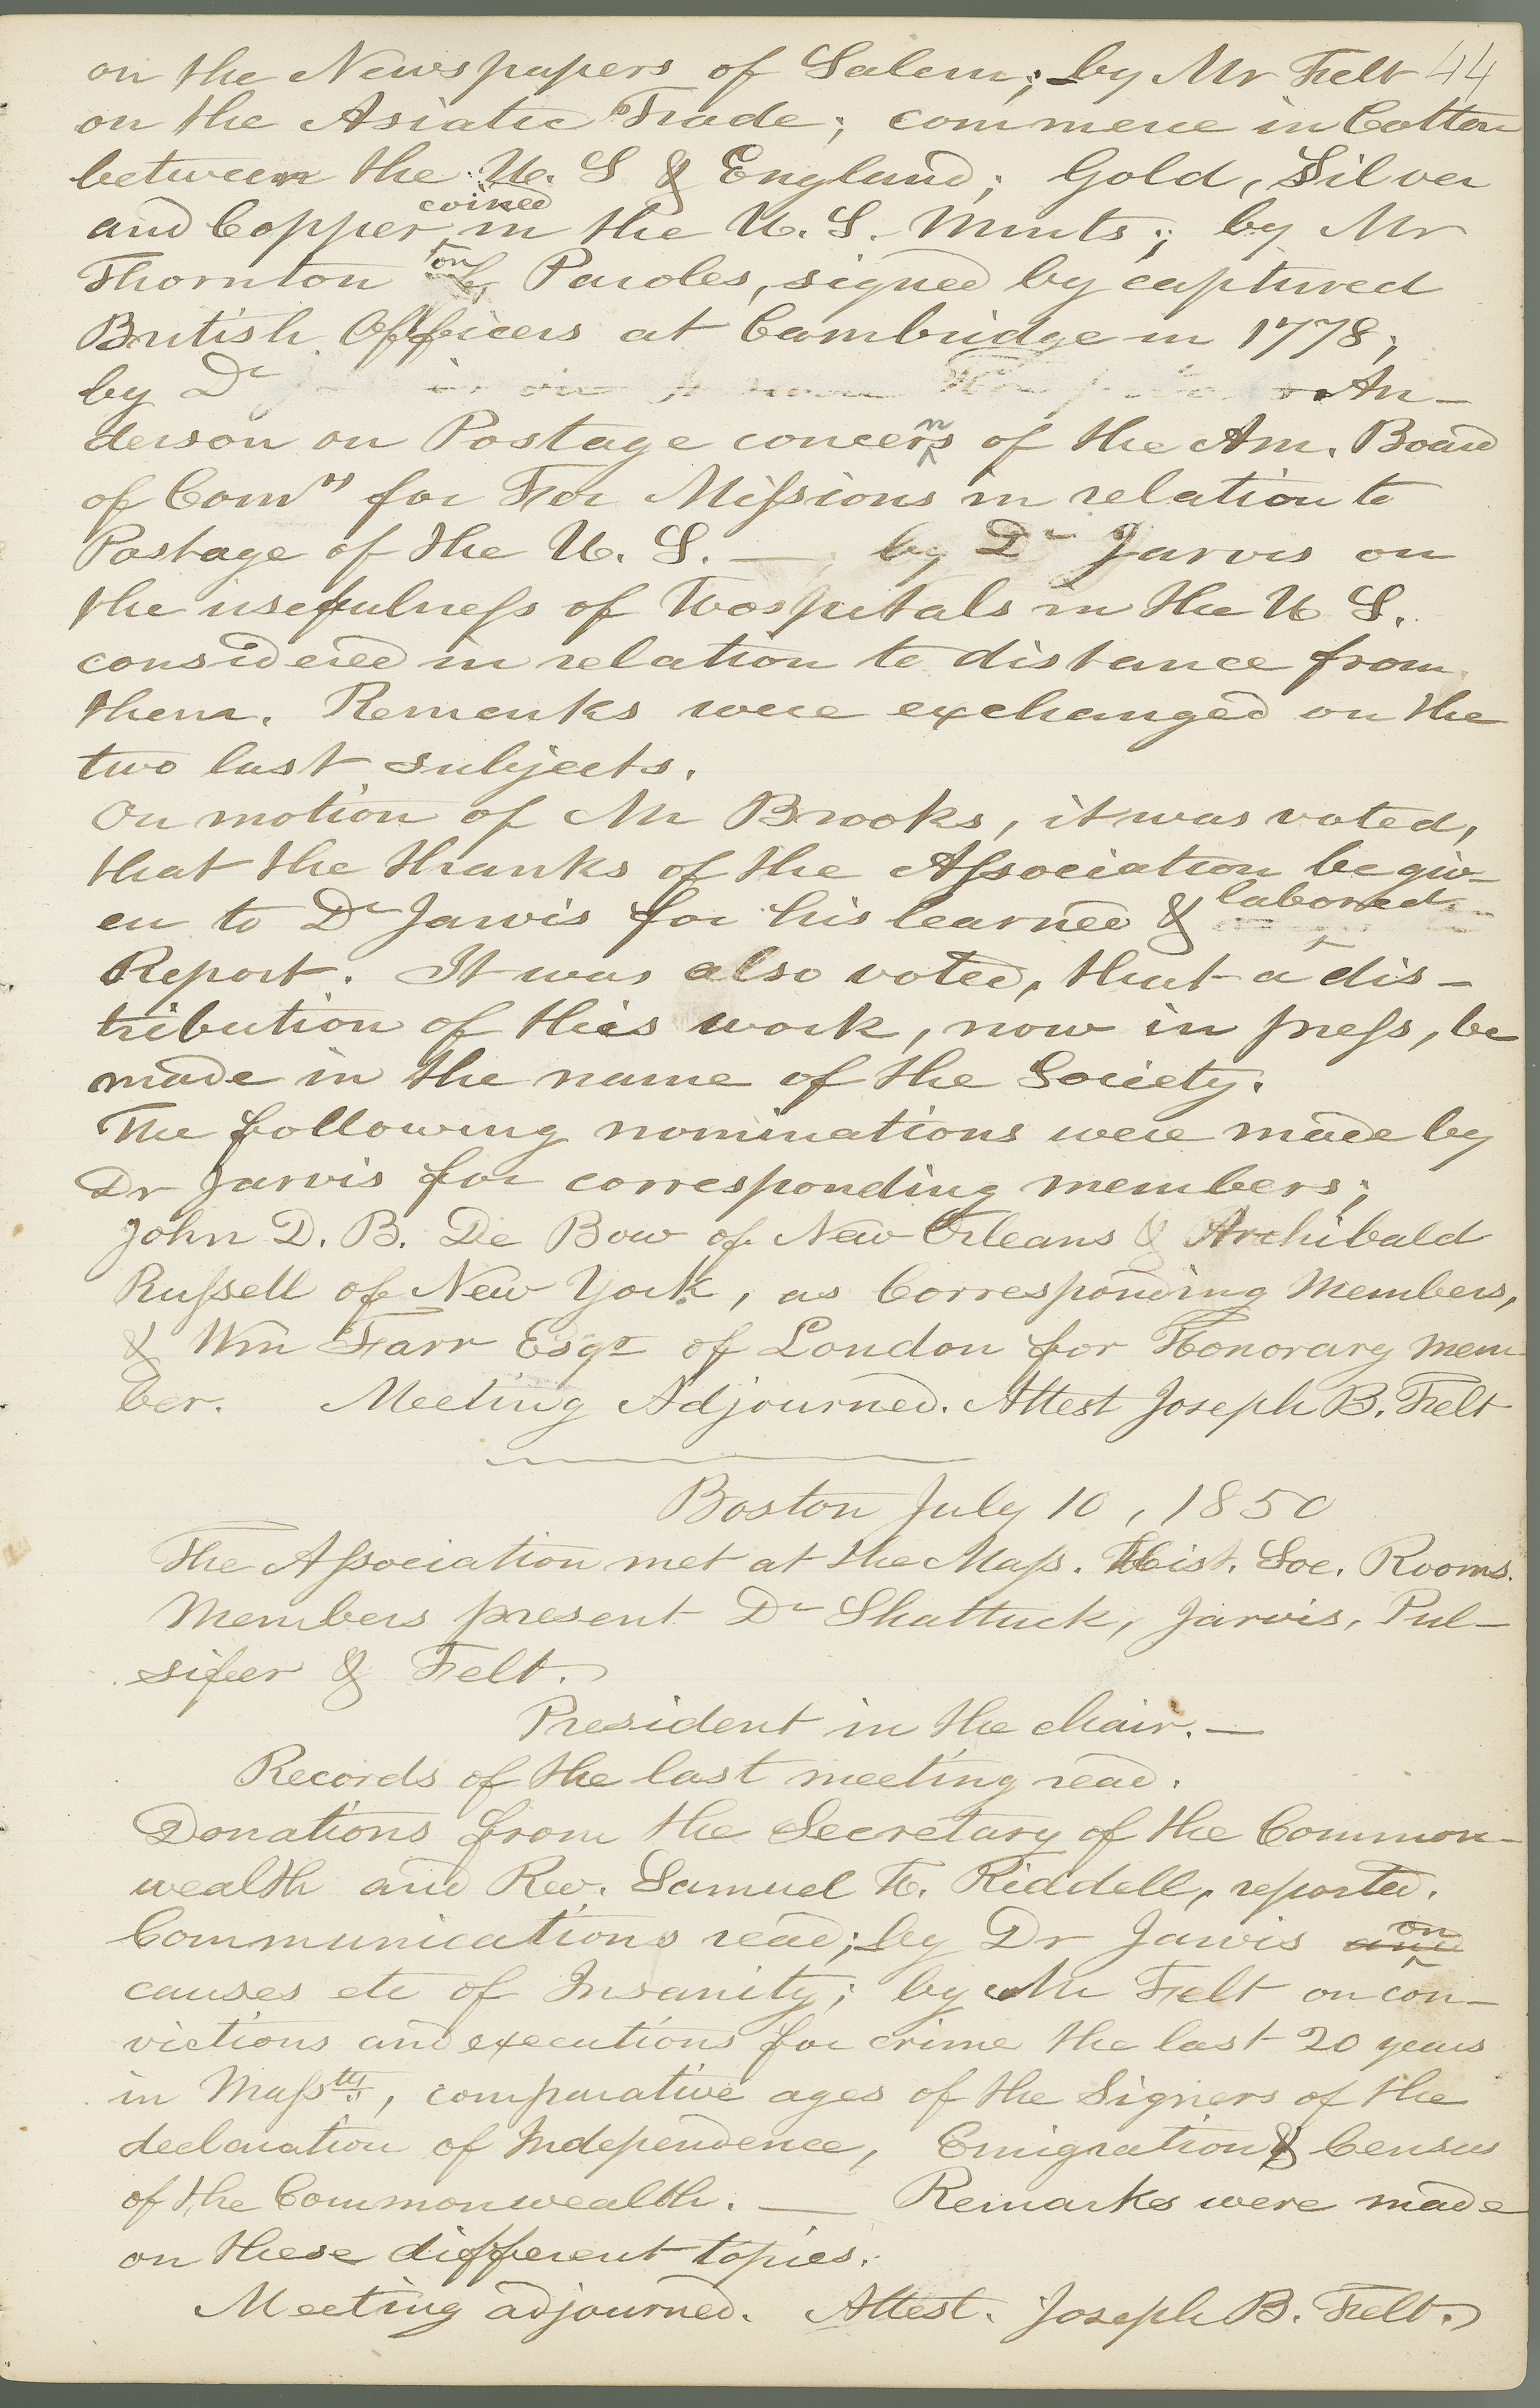 on the Newspapers of Salem; by Mr Felt 44
on the Asiatic Trade; commerce in Cotton
between the U. S & England; Gold, Silver
coined
and Copper in the U. S. Mints; by Mr
on
Thornton Paroles, signed by captured
British Officers at Cambridge in 1778;
by Dr An-
derson on Postage concerns of the Am. Board
of Comrs for For Missions in relation to
Postage of the U. S. — by Dr Jarvis on
the usefulness of Hospitals in the U S.
considered in relation to distance from
them. Remarks were exchanged on the
two last subjects.
On motion of Mr Brooks, it was voted,
that the thanks of the Association be giv-
en to Dr Jarvis for his learned & labored
Report. It was also voted, that a dis-
tribution of this work, now in press, be
made in the name of the Society.
The following nominations were made by
Dr Jarvis for corresponding members;
John D. B. De Bow of New Orleans & Archibald
Russell of New York, as Corresponding Members,
& Wm Farr Esqr of London for Honorary Mem-
ber. Meeting Adjourned. Attest Joseph B. Felt
Boston July 10, 1850
The Association met at the Mass. Hist. Soc. Rooms.
Members present Dr Shattuck, Jarvis, Pul-
sifer & Felt.
President in the chair. —
Records of the last meeting read.
Donations from the Secretary of the Common-
wealth and Rev. Samuel H. Riddell, reported.
on
Communications read; by Dr Jarvis and
causes etc of Insanity; by Mr Felt on con-
victions and executions for crime the last 20 years
in Masstts, comparative ages of the Signers of the
declaration of Independence, Emigration & Census
of the Commonwealth. — Remarks were made
on these different topics.
Meeting adjourned. Attest. Joseph B. Felt.